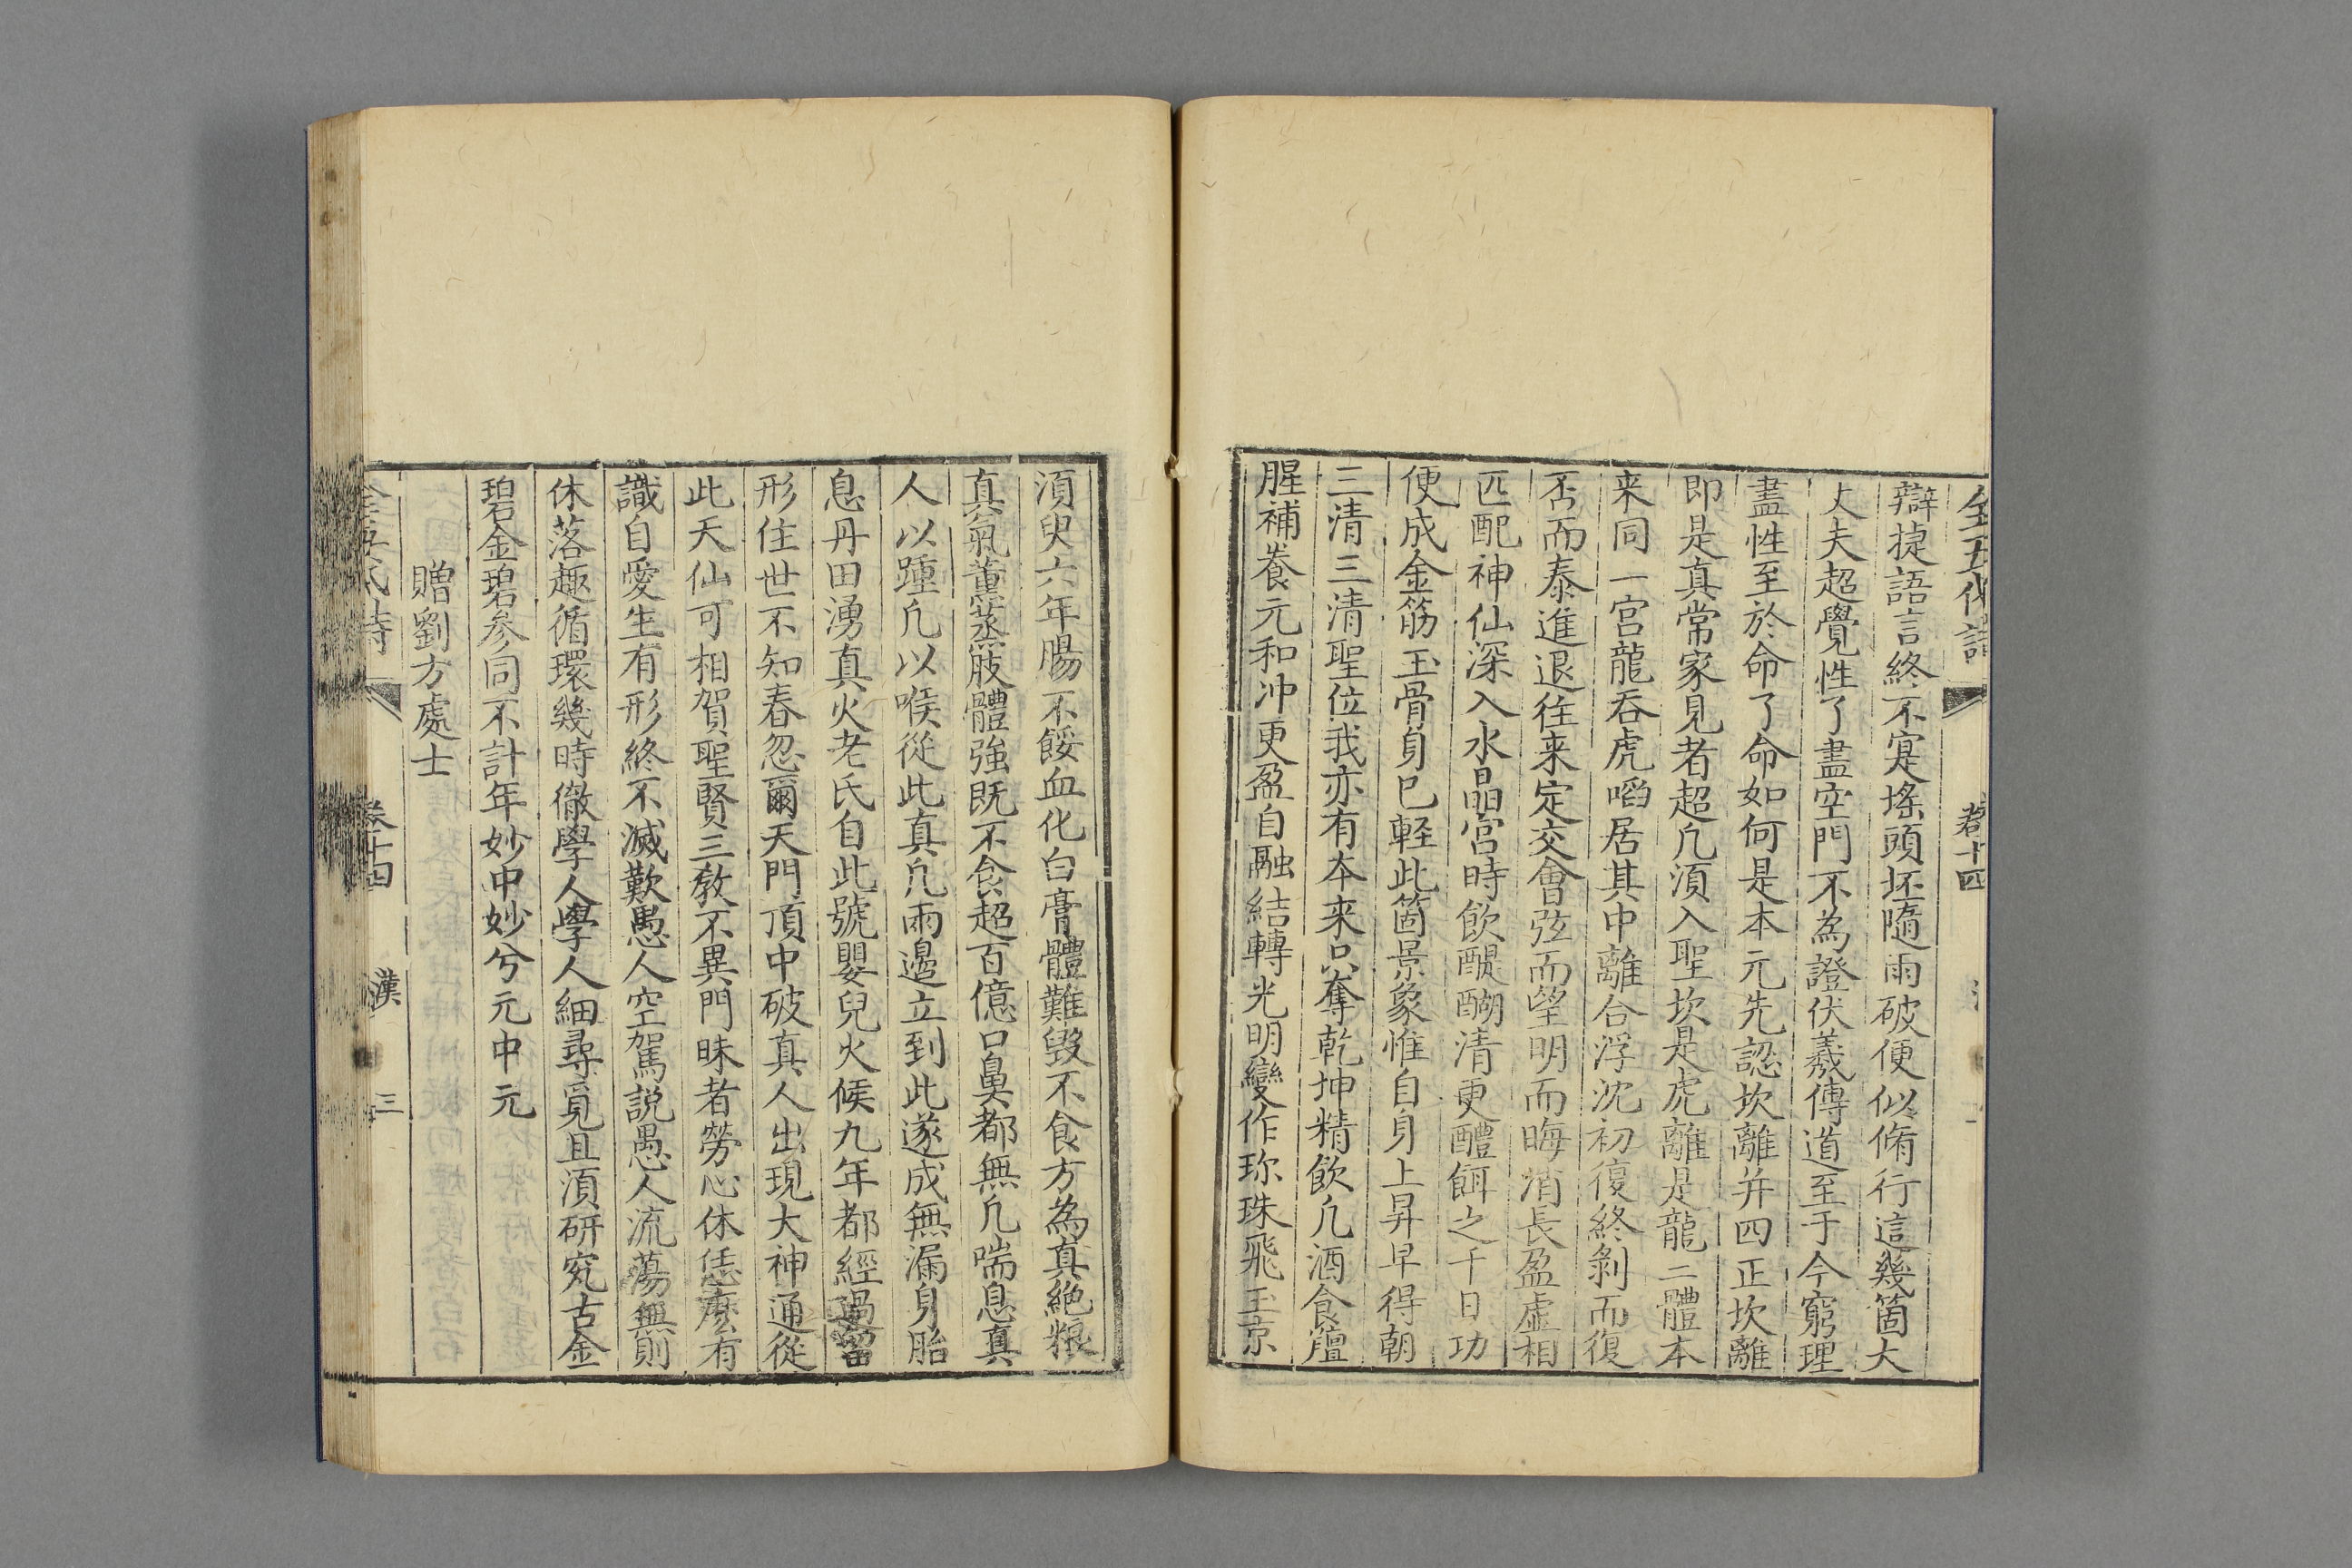 全五代詩 卷十四
辯捷語言終不寔搖頭坯隨雨破便似脩行這幾箇大
丈夫超覺性了盡空門不為證伏羲傳道至于今窮理
盡性至於命了命如何是本元先認坎離并四正坎離
即是真常家見者超凢湏入聖坎是虎離是龍二體本
来同一宮龍吞虎啗居其中離合浮沈初復終剝而復
否而泰進退往来定交會弦而望明而晦消長盈虛相
匹配神仙深入水晶宮時飲醍醐清更醴餌之千日功
便成金筋玉骨身已輕此箇景象惟自身上昇早得朝
三清三清聖位我亦有本来只奪乾坤精飲凢酒食羶
腥補養元和冲更盈自融結轉光明變作珎珠飛玉京
湏臾六年腸不餒血化白膏體難毀不食方為真絕粮
真氣薰蒸肢體強既不食超百億口鼻都無凢喘息真
人以踵凢以喉從此真凢兩邉立到此遂成無漏身胎
息丹田湧真火老氏自此號嬰兒火候九年都經過留
形住世不知春忽爾天門頂中破真人出現大神通從
此天仙可相賀聖賢三教不異門昧者勞心休恁麽有
識自愛生有形終不滅歎愚人空駕説愚人流蕩無則
休落趣循環幾時徹學人學人細尋覓且湏研究古金
碧金碧参同不計年妙中妙兮元中元
贈劉方處士
卷十四 漢 三